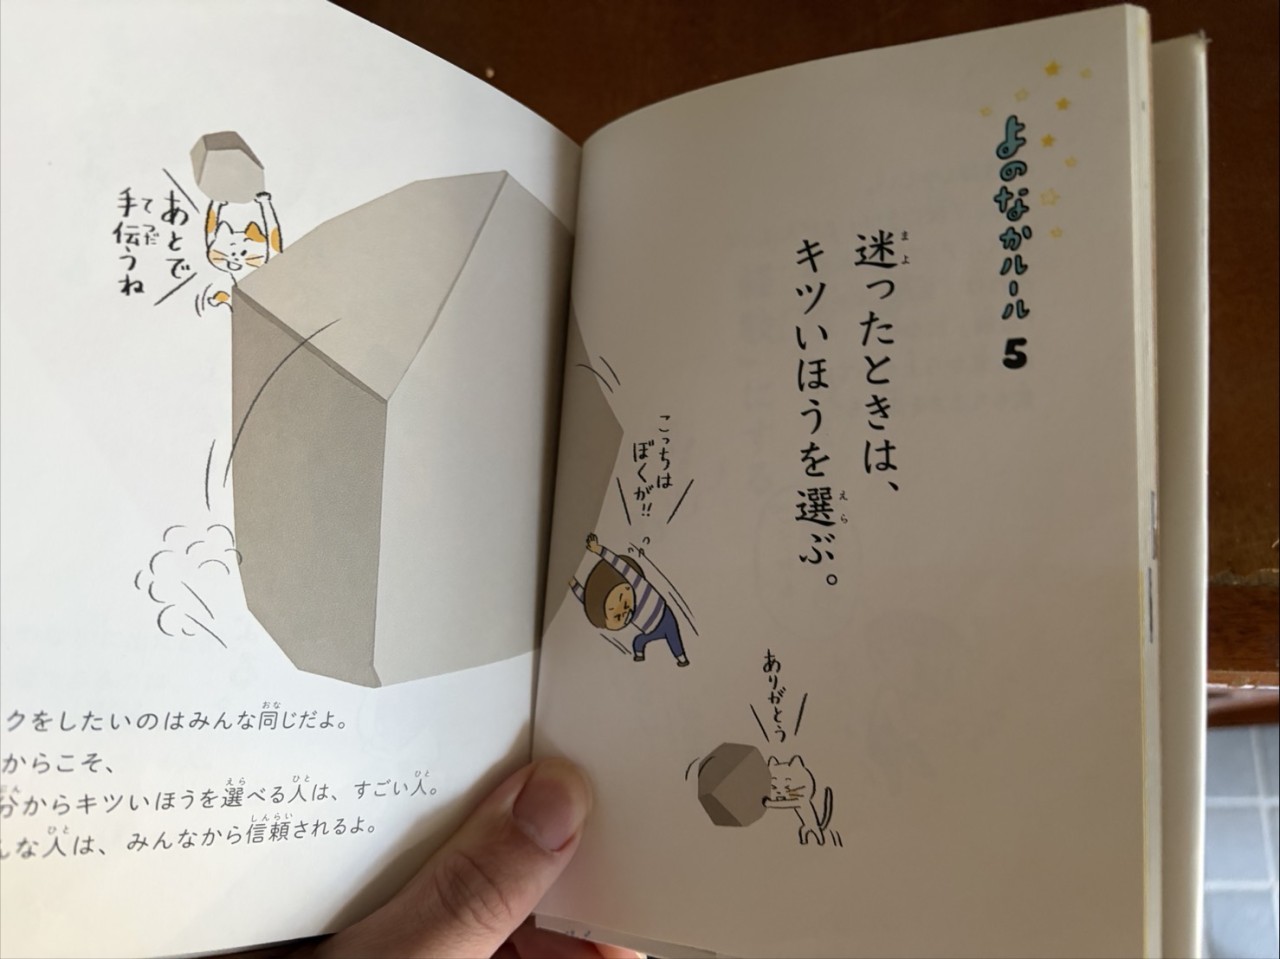 よのなかルール 5
迷ったときは、
キツいほうを選ぶ。
こっちは
ぼくが!!
ありがとう
あとで
手伝うね
クをしたいのはみんな同じだよ。
からこそ、
分からキツいほうを選べる人は、すごい人。
んな人は、みんなから信頼されるよ。